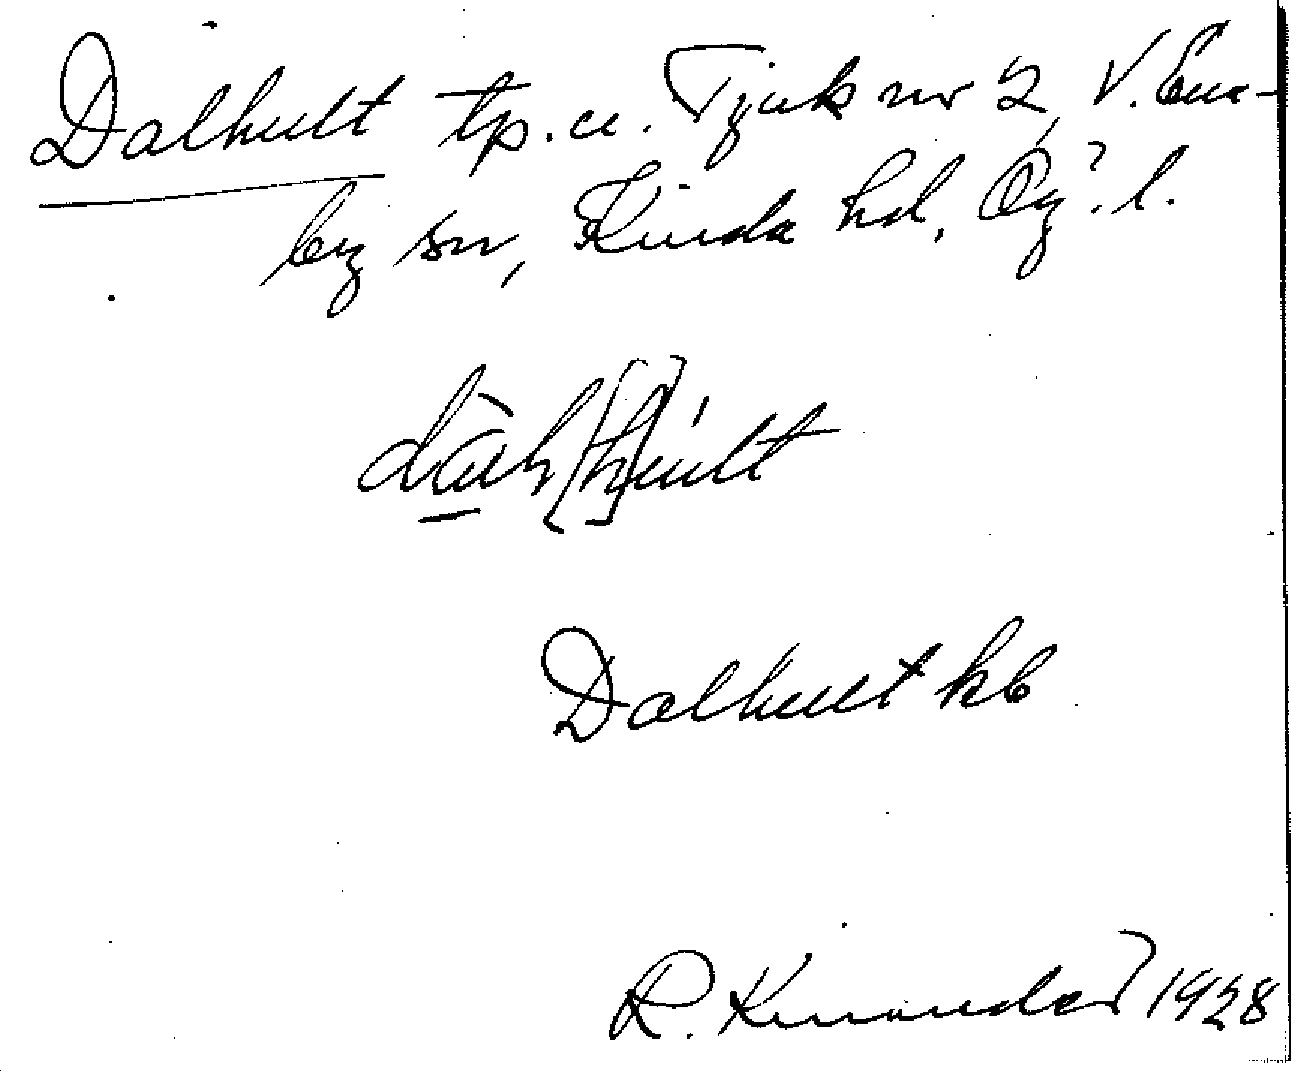 Dalhult tp. u. Tjuk nr 2, V. Ene-
by sn, Kinda hd, Ög. l.
dàl[h]últ
Dalhult kb
R. Kinander 1928